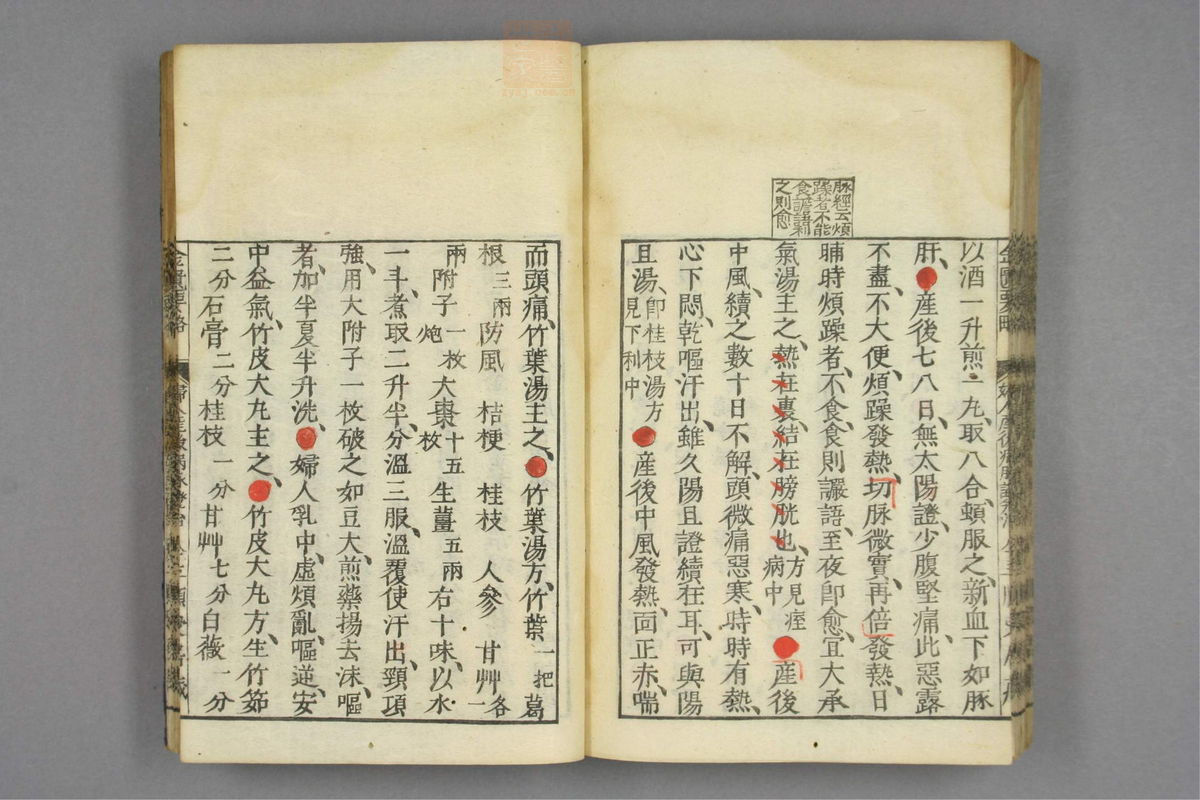 脉經云煩
躁者不能
食譫語利
之則愈
以酒一升煎一丸、取八合、頓服之、新血下如豚
肝、産後七八日、無太陽證、少腹堅痛、此惡露
不盡、不大便、煩躁發熱、切脉微實、再倍發熱、日
晡時煩躁者、不食、食則讝語、至夜卽愈、宜大承
氣湯主之、熱在裏、結在膀胱也、方見痓病中 産後
中風、續之數十日不解、頭微痛、惡寒、時時有熱、
心下悶、乾嘔汗出、雖久陽旦證續在耳、可與陽
旦湯、卽桂枝湯方見下利中 産後中風發熱、面正赤、喘
而頭痛、竹葉湯主之、竹葉湯方、竹葉一把 葛
根三兩 防風 桔梗 桂枝 人參 甘艸各一
兩 附子一枚炮 大棗十五枚 生薑五兩 右十味、以水
一斗、煮取二升半、分溫三服、溫覆使汗出、頸項
強、用大附子一枚、破之如豆大、煎藥揚去沫、嘔
者、加半夏半升洗、婦人乳中虛、煩亂、嘔逆、安
中益氣、竹皮大丸主之、竹皮大丸方、生竹筎
二分 石膏二分 桂枝一分 甘艸七分 白薇一分